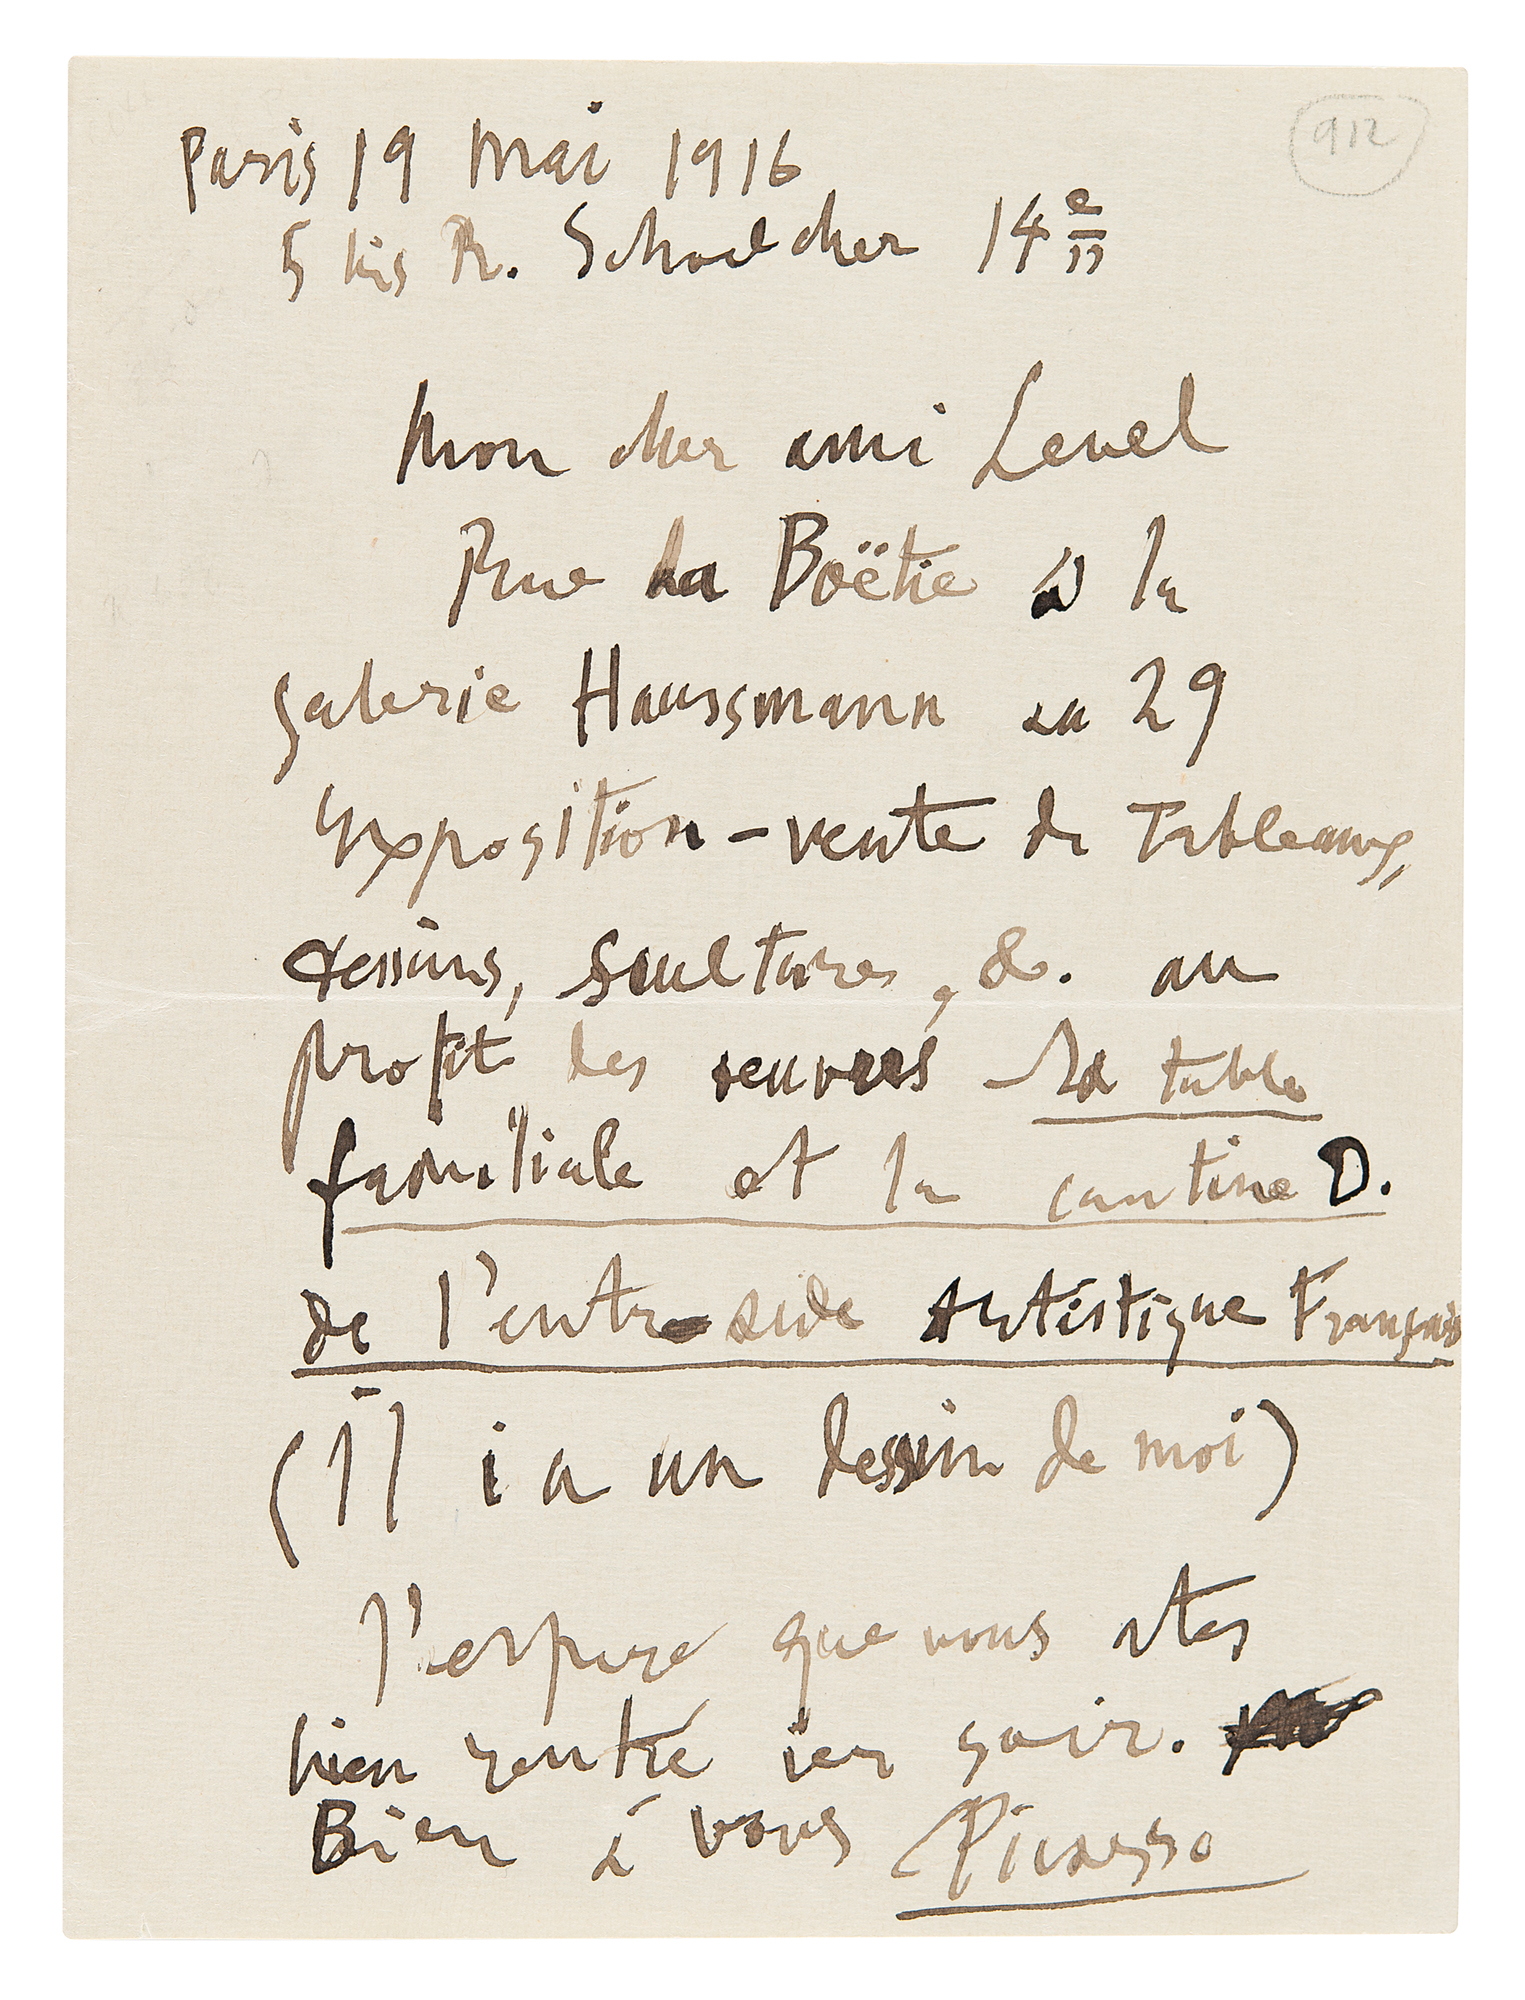 912
Paris 19 Mai 1916
5 bis R. Schoelcher 14e
Mon cher ami Level
Rue La Boëtie à la
galerie Haussmann au 29
exposition - vente de Tableaux,
dessins, scultures, &. au
profit des oeuvres La table
familiale et la cantine D.
de l'entr-aide Artistique Française
(Il i a un dessin de moi)
J'espere que vous etes
bien rentré ier soir.
Bien à vous Picasso